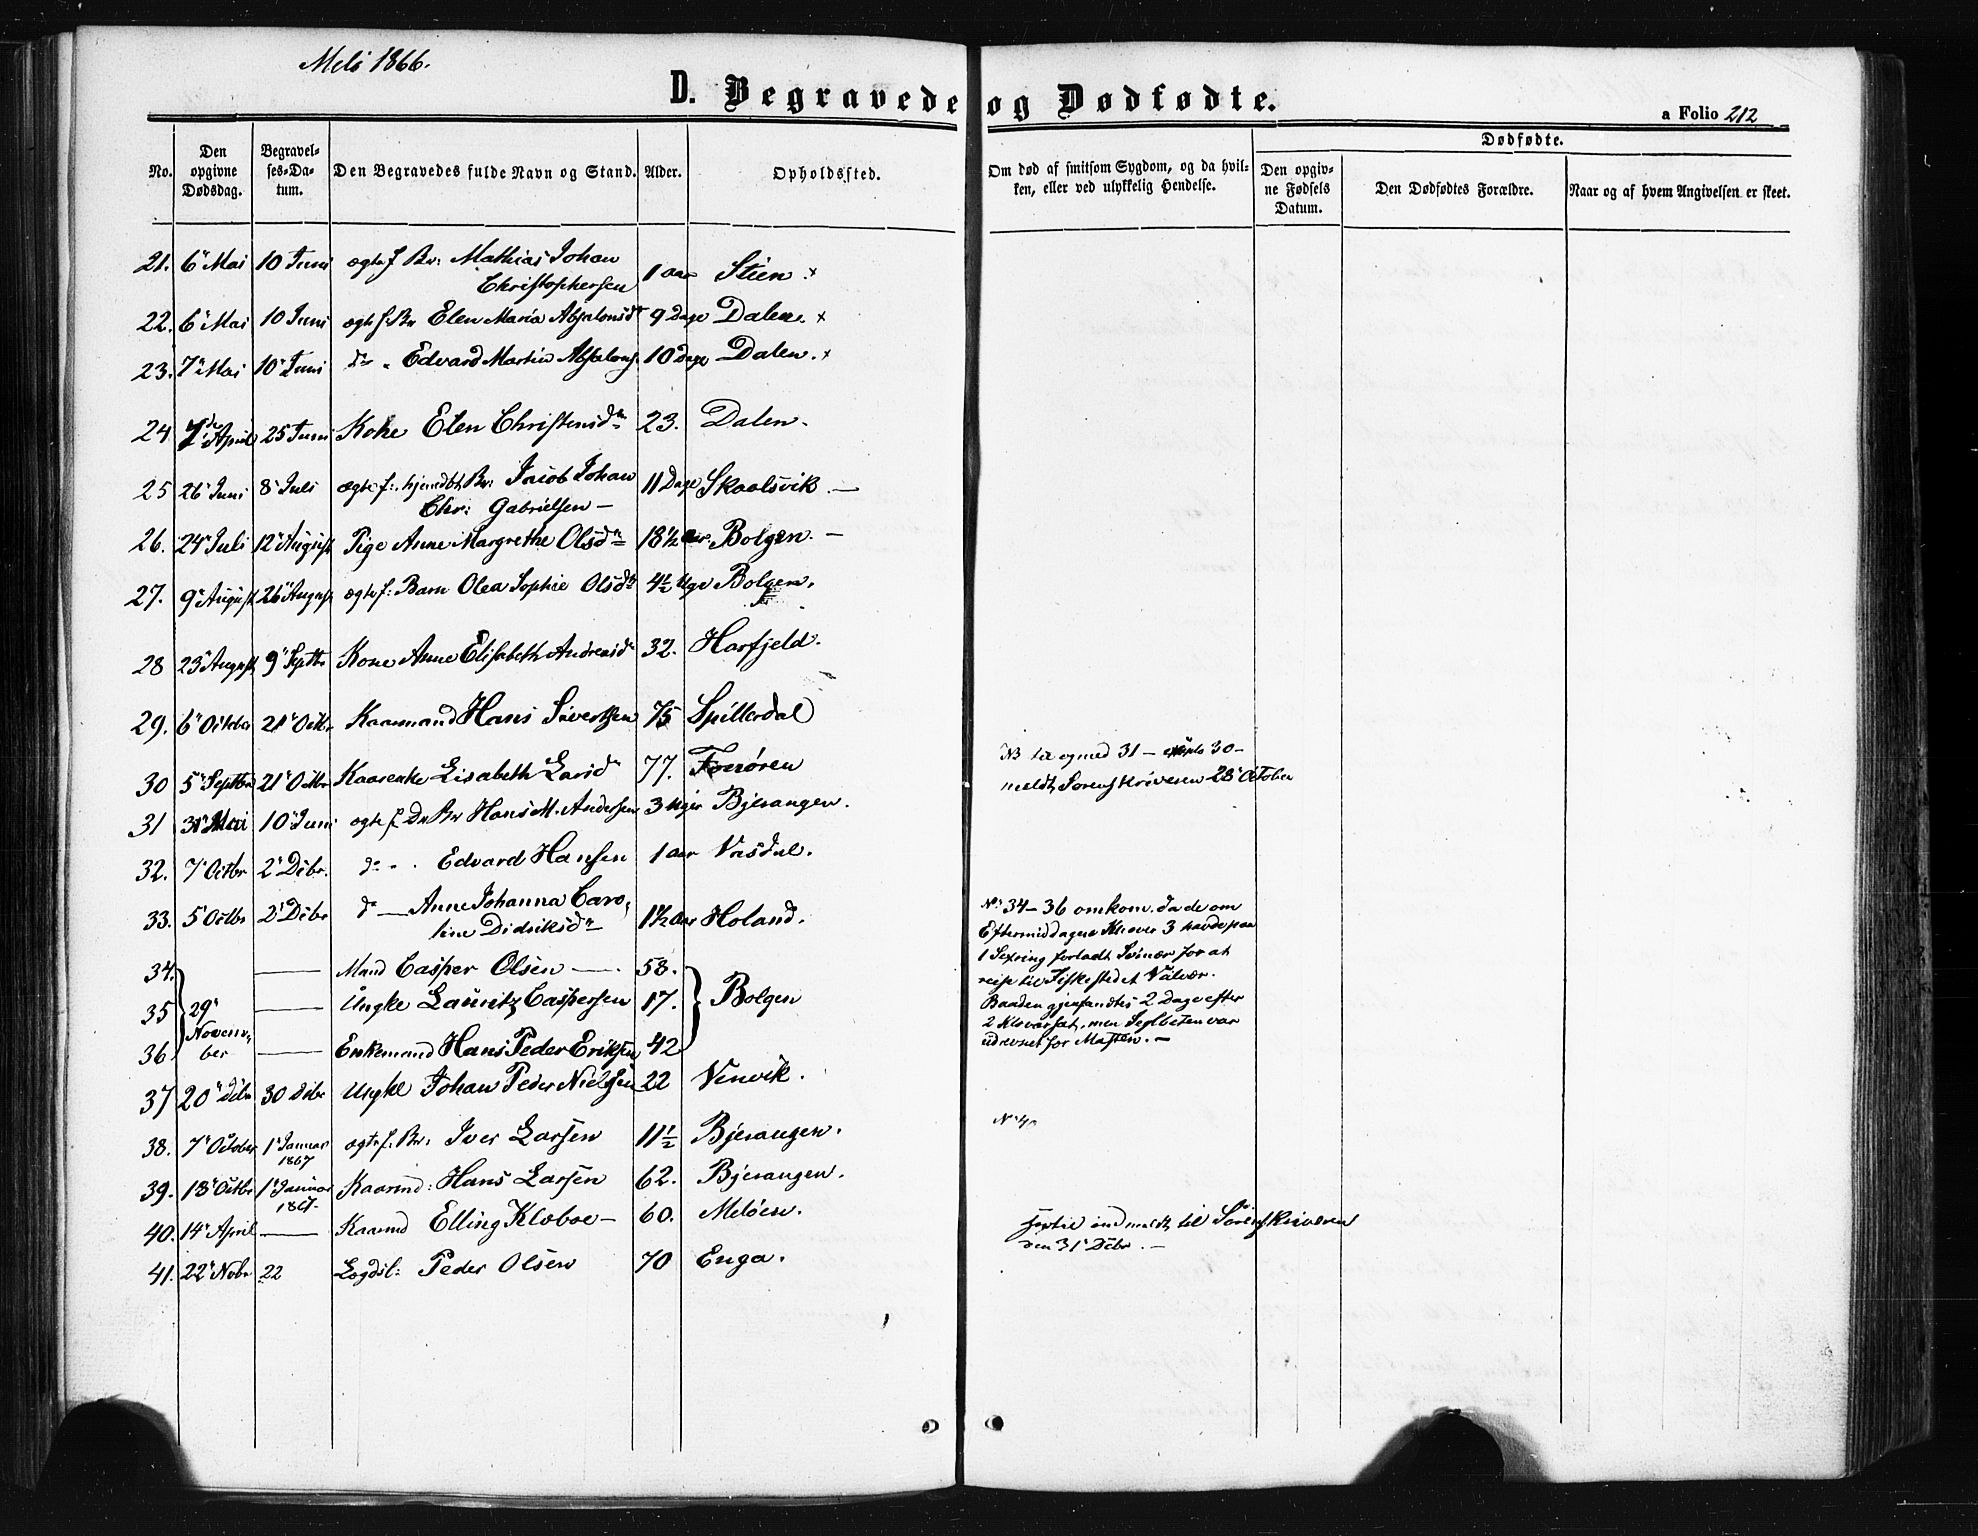 Melö 1866.
D. Begravede og Dødfødte.
a Folio 212
No.
Den opgivne Dødsdag.
Begravelses-Datum.
Den Begravedes fulde Navn og Stand.
Alder.
Opholdssted.
Om død af smitsom Sygdom, og da hvilken, eller ved ulykkelig Hendelse.
Dødfødte.
Den opgivne Fødsels Datum.
Den Dødfødtes Forældre.
Naar og af hvem Angivelsen er skeet.
21. 6 Mai 10 Juni ægte f. Br: Mathias Johan Christophersen 1 aar Stien. x
22. 6 Mai 10 Juni ægte f. Br Elen Maria Absalonsdr 9 Dage Dalen. x
23. 7 Mai 10 Juni do „ Edvard Martin Absalons. 10 Dage Dalen. x
24. April 25 Juni Kone Elen Christensdr 23. Dalen.
25 26 Juni 8 Juli ægte f: hjemdbt Br: Jacob Johan Chr: Gabrielsen — 11 Dage Skaalsvik —
26. 24 Juli 12 August Pige Anne Margrethe Olsdr 18½ Aar. Bolgen. —
27. 9 August 26 August ægte f: Barn Olea Sophie Olsdr 4½ Uge Bolgen.
28 23 August 9 Septbr Kone Anne Elisabeth Andreasdr 32. Harfjeld.
29. 6 October 21 Octbr Kaarmand Hans Sivertsen 75 Spillerdal
30 5 Septbr 21 Octbr Kaarenke Lisabeth Larsdr 77. Forøren
31 31 Mai 10 Juni ægte f. Br Hans M. Andersen 3 Uger Bjerangen.
32. 7 Octbr 2 Debr. do „ Edvard Hansen 1 aar Vasdal.
33. 5 Octbr 2 Debr do — Anne Johanna Caroline Didriksdr 1½ Aar Holand.
34. — Mand Casper Olsen — 58.
35 29 November — Ungke Lauritz Caspersen 17. Bolgen
36 — Enkemand Hans Peder Eriksen 42
37 20 Debr 30 Debr Ungkl Johan Peder Nielsen 22 Venvik.
38. 7 October 1 Januar 1867 ægte f: Br: Iver Larsen 11½ Bjerangen.
39. 18 Octbr 1 Januar 1867. Kaarmd: Hans Larsen 62. Bjerangen.
40. 14 April — Kaarmd Elling Kloboe — 60. Melöen.
41. 22 Nobr 22 Logdsl: Peder Olsen 70 Enga.
NB 31 — 30 —
meldt Sorenskriveren 28 October
No: 34–36 omkom da de om
Eftermiddagen Klover 3 havde paa
1 Sexring forladt Svinær for at
reise til Fiskestedet Valvær.
Baaden gjenfandtes 2 Dage efter
2 Klovarsat, men Seglbeten var
udrevnet for Masten. —
No 40
indmeldt til Sorenskriveren
den 31 Debr. —